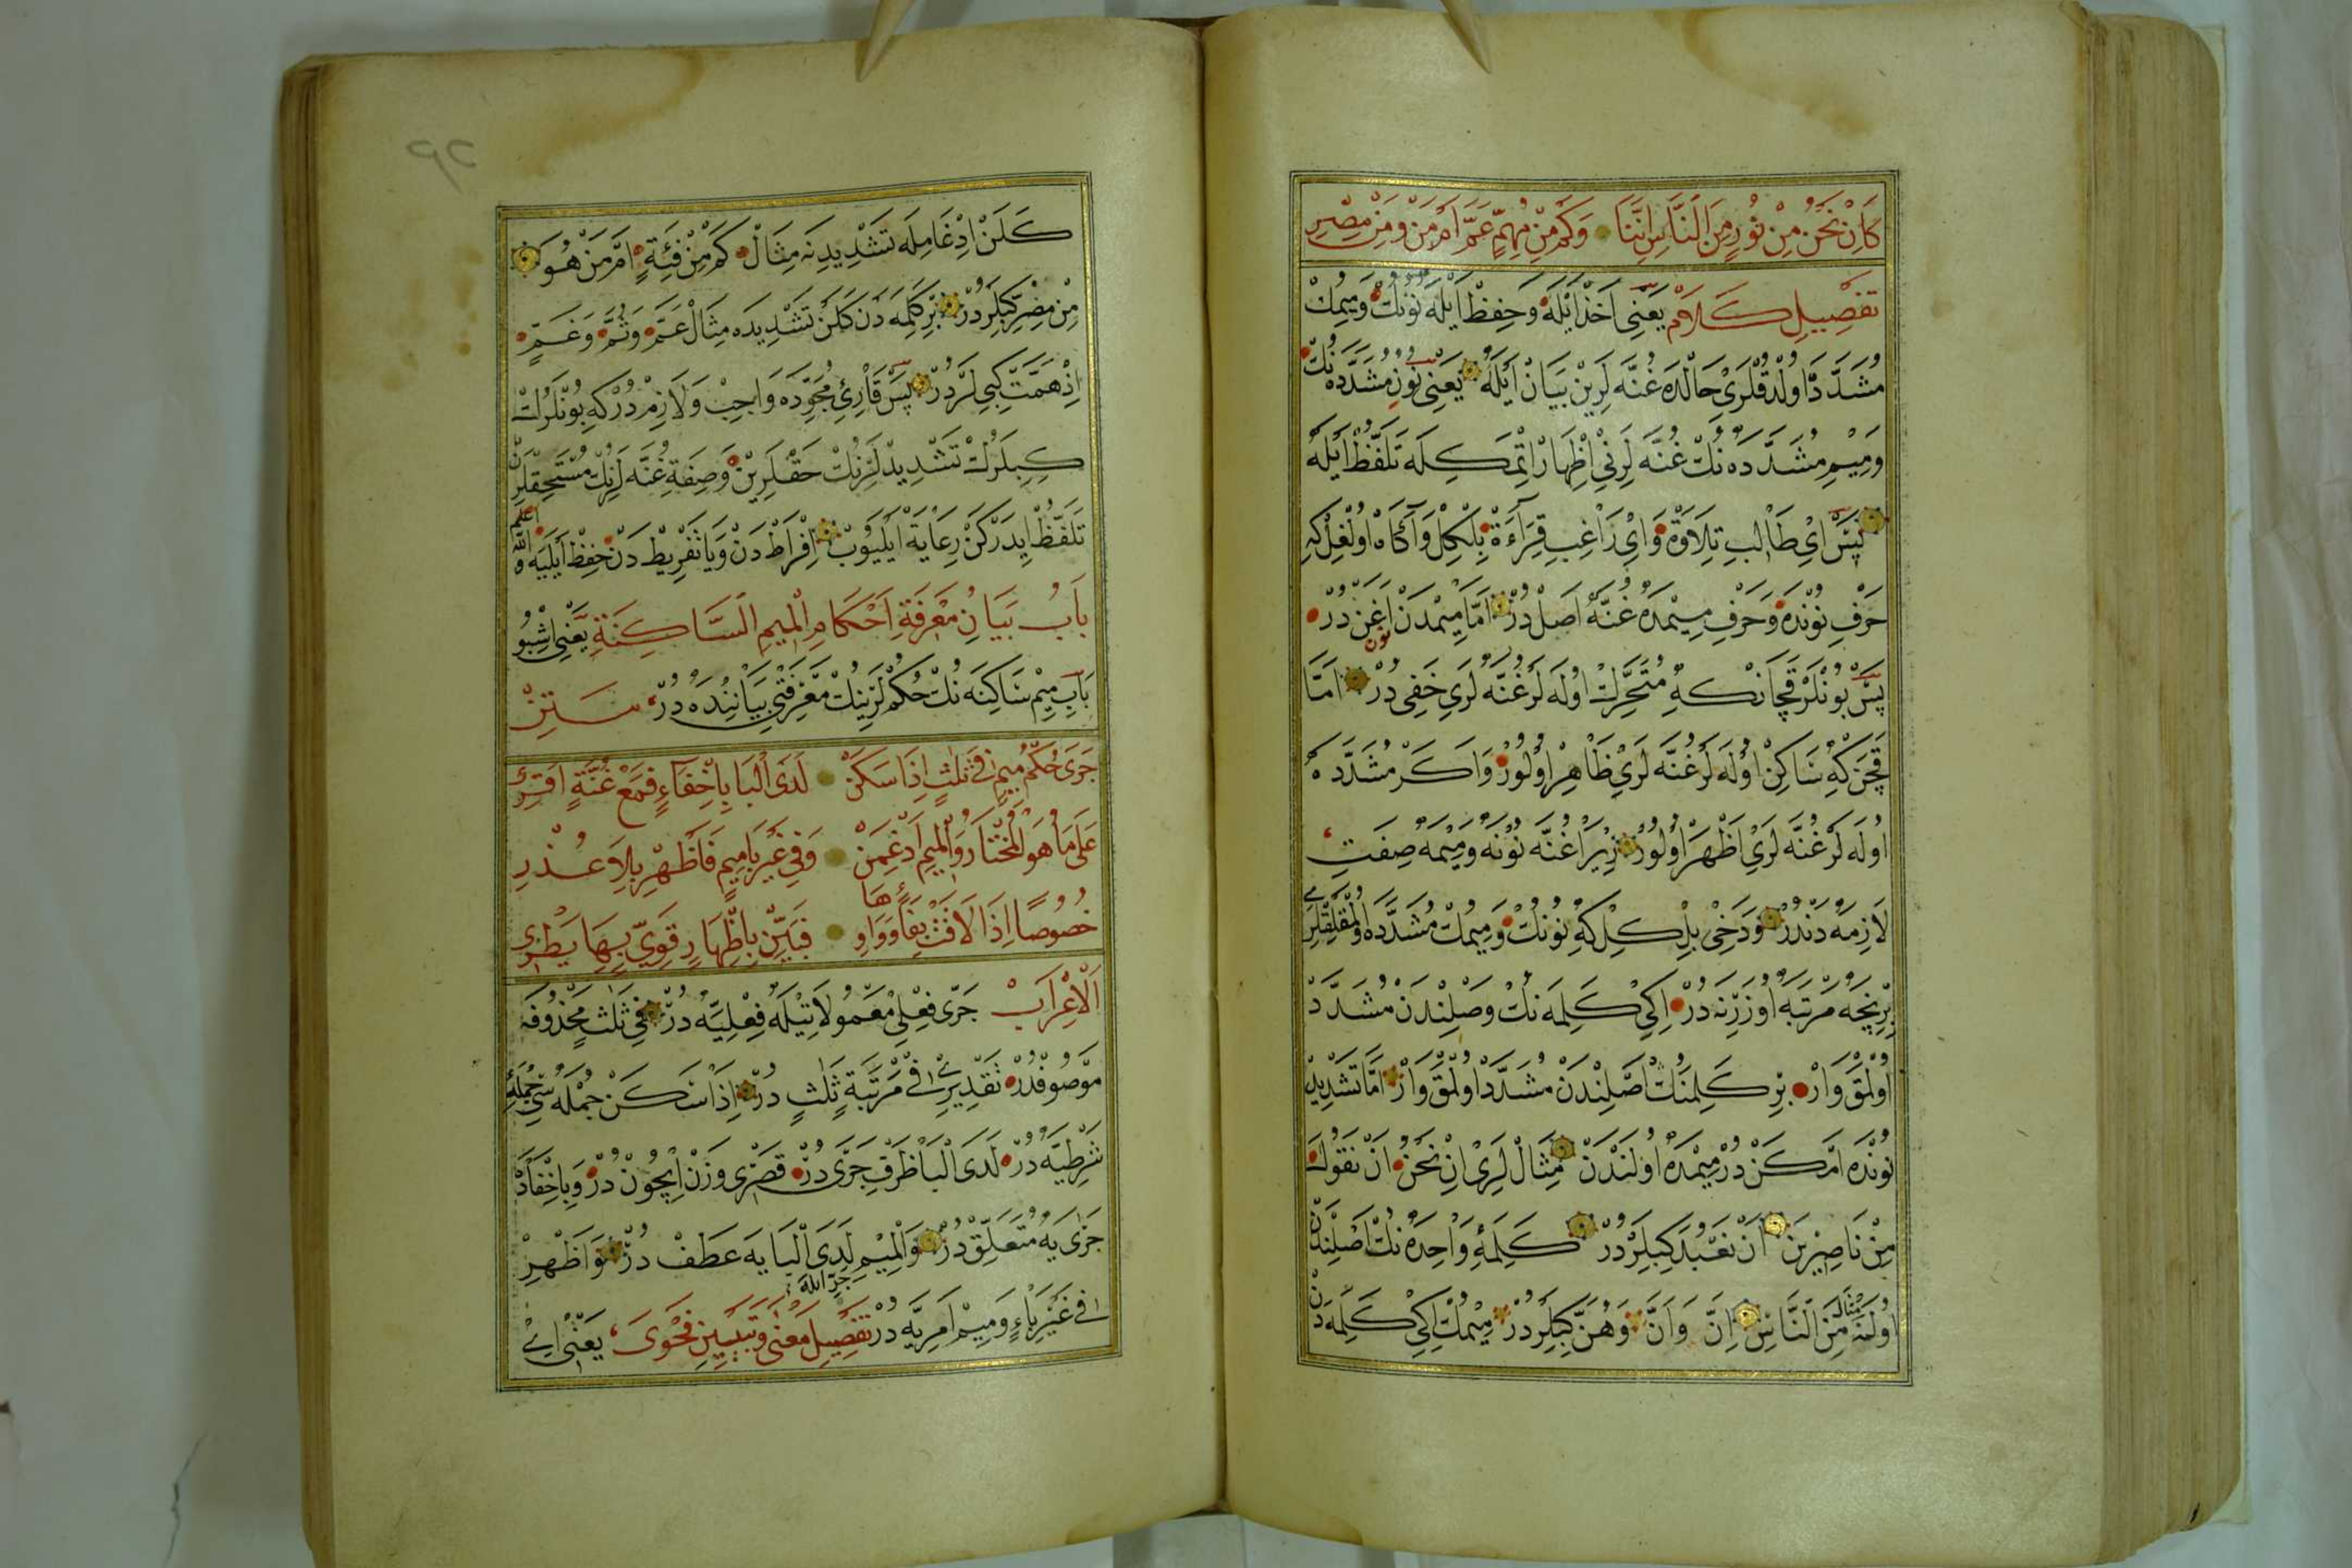 كَاِنْ نَحْنُ مِنْ نُورٍ مِنَ النَّاسِ اِنَّنَا وَكَمْ مِنْ مُهِمٍّ عَمَّ اَمْ مَنْ وَمِنْ مِصْرِ
تَفْصِيلِ كَلَامْ يَعْنِى اَخْذْ اَيْلَهْ وَحِفِظْ اَيْلَهْ نُونُكْ وَمِيمُكْ
مُشَدَّدْ اوُلْدُقْلَرِىْ حَالْدَهْ غُنَّهْ لَرِيْنْ بَيَانْ اَيْلَهْ يَعْنِى نُونِ مُشَدَّدَهْ نُكْ
وَمِيْمِ مُشَدَّدَهْ نُكْ غُنَّهْ لَرِنِىْ اِظْهَارْ اِتْمَكِلَهْ تَلَفُّظْ اَيْلَهْ
پَسْ اَىْ طَالِبِ تِلَاوَةْ وَاىْ رَاغِبِ قِرَاءَةْ بِلْكِلْ وَآكَاهْ اوُلْغِلْ كِهْ
حَرْفِ نُونْدَهْ وَحَرْفِ مِيمْدَهْ غُنَّهْ اَصَلْ دُرْ اَمَّا مِيمْدَنْ اَغَنْ دُرْ نون
پَسْ بُونْلَرْ قَچَانْكِهْ مُتَحَرِّكْ اوُلَهْ لَرْ غُنَّهْ لَرِى خَفِى دُرْ اَمَّا
قَچَنْ كِهْ سَاكِنْ اوُلَهْ لَرْ غُنَّهْ لَرِىْ ظَاهِرْ اوُلُورْ وَاكَرْ مُشَدَّدَهْ
اوُلَهْ لَرْ غُنَّهْ لَرِىْ اَظْهَرْ اوُلُورْ زِيرَا غُنَّهْ نُونَهْ وَمِيمَهْ صِفَتِ
لَازِمَهْ دَنْدُرْ وَدَخِى بِلْكِلْ كِهْ نُونُكْ وَمِيمُكْ مُشَدَّدَهْ اوُلْمَقْلِقْلَرِى
بِرْ نِچَهْ مَرْتَبَهْ اوُزَرِنَهْ دُرْ اِكِى كَلِمَهْ نُكْ وَصْلِنْدَنْ مُشَدَّدْ
اوُلْمَقْ وَارْ بِرْ كَلِمَنُكْ اَصْلِنْدَنْ مُشَدَّدْ اوُلْمَقْ وَارْ اَمَّا تَشْدِيدْ
نُونْدَهْ اَمْكَنْ دُرْ مِيمْدَهْ اوُلَنْدَنْ مِثَالْ لَرِى اِنْ نَحْنُ اَنْ نَقُولَ
مِنْ نَاصِرِينَ اَنْ نَعْبُدَ كِبِلَرْ دُرْ كَلِمَهءِ وَاحِدَهْ نُكْ اَصْلِنْدَنْ
اوُلَنَهْ مِثَالْ مِنَ النَّاسِ اِنَّ وَاَنَّ وَهُنَّ كِبِلَرْدُرْ مِيمُكْ اِكِى كَلِمَهْ دَنْ
كَلَنْ اِدْغَامِلَه تَشْدِيدِنَه مِثَالْ كَمْ مِنْ فِئَةٍ اَمْ مَنْ هُوَ
مِنْ مِصْرَ كِبِلَرْدُرْ بِرْ كَلِمَه دَنْ كَلَنْ تَشْدِيدَه مِثَالْ عَمَّ وَثُمَّ وَغَمٍّ
اِذْ هَمَّتْ كِبِى لَرْدُرْ پَسْ قَارِئِ مُجَوِّدَه وَاجِبْ وَلَازِمْ دُرْ كِه بُونْلَرُكْ
كِبِلَرُكْ تَشْدِيدْلَرِنُكْ حَقْلَرِيْنْ وَصِفَةِ غُنَّه لَرِنُكْ مُسْتَحِقْلَرِنْ
تَلَفُّظْ اِيدَرْكَنْ رِعَايَةْ اَيْلَيُوبْ اِفْرَاطْ دَنْ وَيَا تَفْرِيطْ دَنْ حِفْظْ اَيْلَيَه وَاللّٰه اعلم
بَابُ بَيَانِ مَعْرِفَةِ اَحْكَامِ الْمِيمِ السَّاكِنَةِ يَعْنِى اِشْبُو
بَابِ مِيمِ سَاكِنَه نُكْ حُكْمْ لَرِينُكْ مَعْرِفَتِى بَيَانِنْدَه دُرْ مَتِنْ
جَرَى حُكْمُ مِيمٍ فِى ثَلٰثٍ اِذَا سَكَنْ لَدَى الْبَا بِاِخْفَاءٍ فَمَعْ غُنَّةٍ اقْرِئْ
عَلَى مَا هُوَ الْمُخْتَارُ وَالْمِيمِ اَدْغِمَنْ وَفِى غَيْرِ بَا مِيمٍ فَاَظْهِرْ بِلَا عُذْرِ
خُصُوصًا اِذَا لَاقَتْ بِفَا وَوَاوِهَا فَبَيِّنْ بِاِظْهَارٍ قَوِيٍّ بِهَا يَطْرِى
اَلْاِعْرَابْ جَرَى فِعْلِى مَعْمُولَاتِيلَه فِعْلِيَّه دُرْ فِى ثَلٰثٍ مَحْذُوفَه
مَوْصُوفْدُرْ تَقْدِيرِى فِى مَرْتَبَةٍ ثَلٰثٍ دُرْ اِذَا سَكَنْ جُمْلَه سِى جُمْلَهءِ
شَرْطِيَّه دُرْ لَدَى الْبَا ظَرْفِ جَرَى دُرْ قَصْرِى وَزَنْ اِيچُونْ دُرْ وَبِاِخْفَا دَه
جَرٰى يَه مُتَعَلِّقْ دُرْ وَالْمِيمِ لَدَى الْبَا يَه عَطَفْ دُرْ جر الله وَاَظْهِرْ
فِى غَيْرِ بَاءٍ وَمِيمْ اَمْرِيَّه دُرْ تَفْصِيلِ مَعْنٰى وَتَبْيِينِ فَحْوٰى يَعْنِى اَىْ